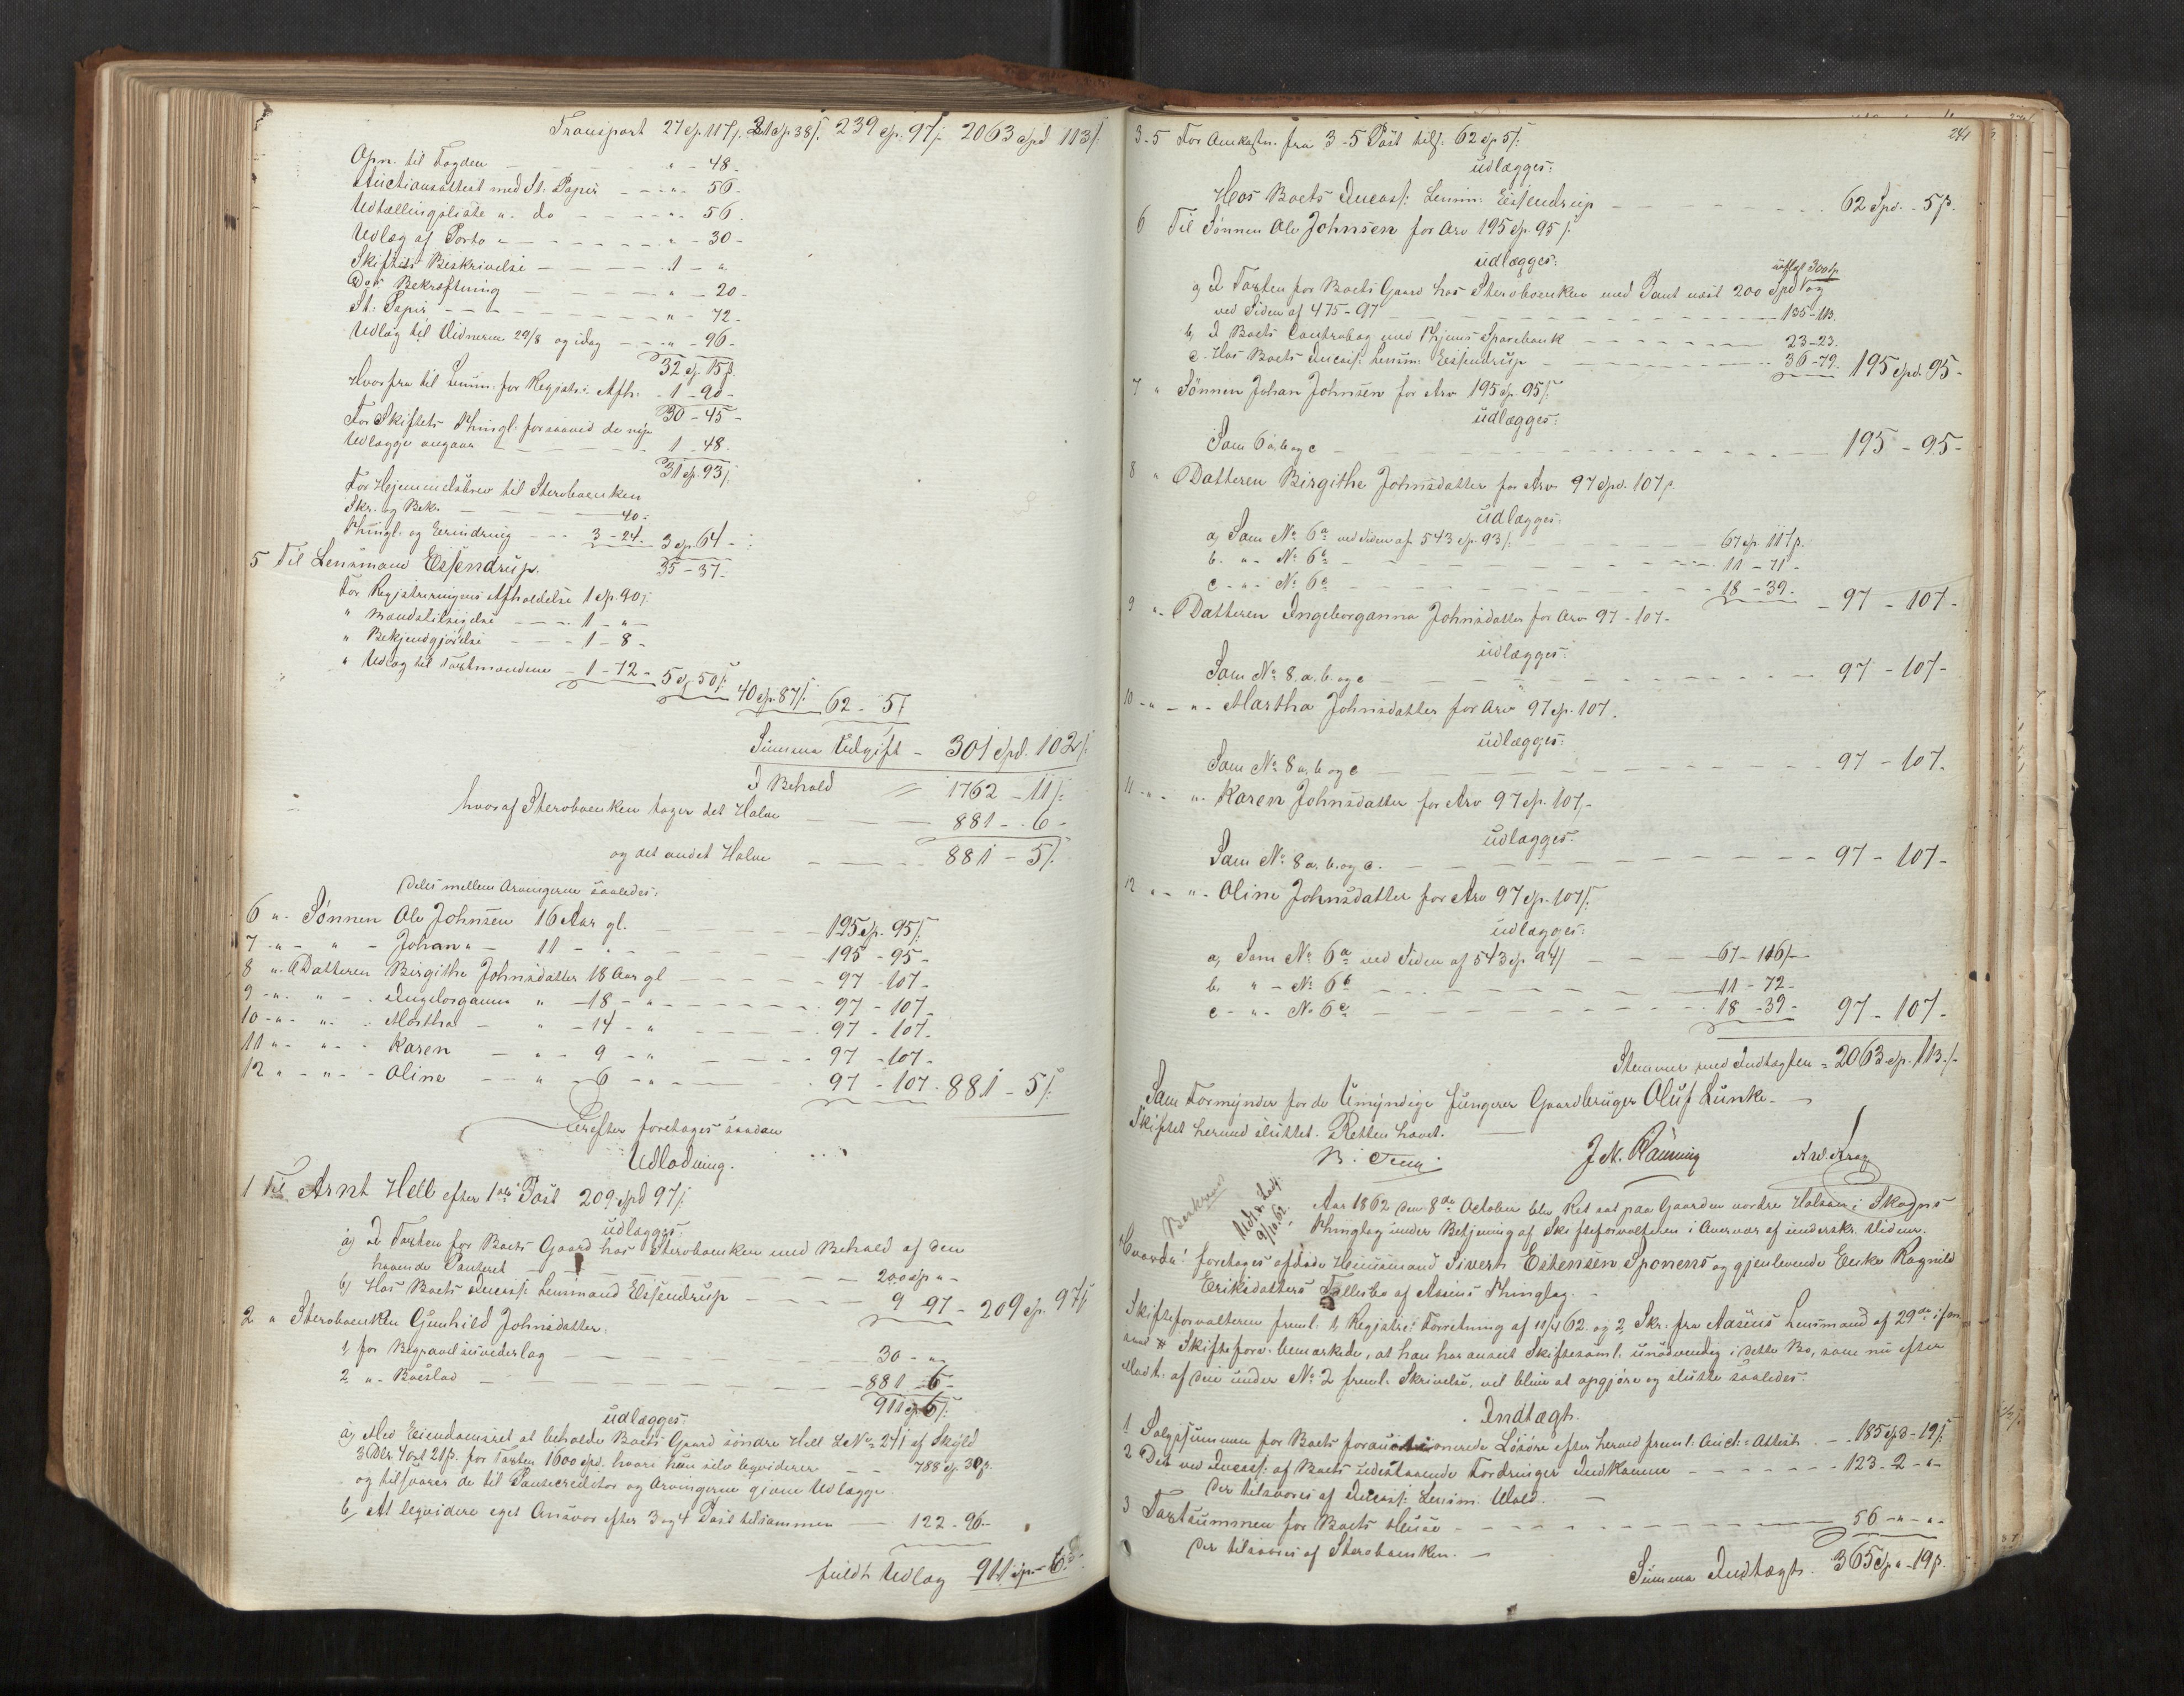 Transport 27 sp. 117 ß. 21 sp 38 ß. 239 sp. 97 ß 2063 spd 113 ß.
Opn. til Fogden - - " - 48 -
Auctionsattest med St. Papir - - - " - 56 -
Udtællingsliste " do - - - - " - 56.
Udlæg af Porto - - - - " - 30 -
Skiftets Beskrivelse - - - - 1 - "
Dets Bekræftning - - - " - 20 -
St. Papir - - - - - " - 72 -
Udlæg til Vidnerne 29/8 og idag - - " - 96 -
32 sp. 15 ß.
Hvorfra til Lensm. for Registr: Afh: - 1 - 90 -
30 - 45 -
For Skiftets Thingl. forsaavid de nye
Udlægge angaar - - - 1 - 48.
31 sp. 93 ß
For Hjemmelsbrev til Sterboenken
Skr. og Bek. - - - 40 -
Thingl. og Erindring - - - 3 - 24. 3 sp. 64 -
35 - 37 -
5 Til Lensmand Essendrup.
For Registreringens Afholdelse 1 sp. 90 ß
" Mandstilsigelse - - - 1 - " -
" Bekjendgjørelse - - - 1 - 8 -
" Udlæg til Taxtmændene - 1 - 72 - 5 sp 50 ß. 40 sp. 87 ß. 62 - 5 ß
Summa Udgift - 301 spd. 102 ß.
I Behold 1762 - 11 ß.
hvoraf Sterboenken tager det Halve - - - 881 - 6 -
og det andet Halve - - - 881 - 5 ß.
deles mellem Arvingerne saaledes:
6 " Sønnen Ole Johnsen 16 Aar gl. - - - 195 sp. 95 ß.
7 - " - " - Johan " - 11 - " - - - 195 - 95 -
8 " Datteren Birgithe Johnsdatter 18 Aar gl - - - 97 - 107 -
9 - " - " - Ingeborganna " - 18 - " - - - 97 - 107 -
10 - " - " - Martha - " - 14 - " - - - 97 - 107 -
11 " - " - Karen - " - 9 - " - - - 97 - 107 -
12 " - " - Oline - - " - 6 - " - - - 97 - 107. 881 - 5 ß.
Derefter foretages saadan
Udlodning.
1 Til Arnt Hell efter 1ste Post 209 spd 97 ß.
udlægges:
a) I Taxten for Boets Gaard hos Sterboenken med Behold af den
havende Panteret - - - 200 sp " -
b) Hos Boets Incass: Lensmand Essendrup - - - 9 97 - 209 sp. 97 ß
2 " Sterboenken Gunhild Johnsdatter:
1, for Begravelsesvederlag - - - 30 - " -
2 " - Boeslod - - - 881 - 6 -
911 sp 6 ß.
udlægges:
a) Med Eiendomsret at beholde Boets Gaard søndre Hell L No 241 af Skyld
3 Dlr. 4 ort 21 ß. for Taxten 1600 spd. hvori hun selv leqviderer - - 788 sp. 30 ß.
og tilsvarer de til Pantecreditor og Arvingerne givne Udlægge
b) At leqvidere eget Ansvar efter 3 og 4 Post tilsammen - 122 - 96 -
fuldt Udlæg 911 sp. - 6 ß.
241
3-5 For Omkostn. fra 3-5 Post tils: 62 sp 5 ß.
udlægges:
Hos Boets Incass: Lensm: Essendrup - - - 62 Spd. - 5 ß.
6 Til Sønnen Ole Johnsen for Arv 195 sp. 95 ß.
udlægges:
a) I Taxten for Boets Gaard hos Sterboenken med Pant næst 200 Spd og
ved Siden af 475 - 97 - - - 135 - 113.
b) I Boets Contrabog med Thjems Sparebank - - - 23 - 23.
c. Hos Boets Incass: Lensm: Essendrup - - - 36 - 79. 195 spd. 95 -
7 " Sønnen Johan Johnsen for Arv 195 sp. 95 ß.
udlægges:
Som 6 a. b og c - - - 195 - 95 -
8 " Datteren Birgithe Johnsdatter for Arv 97 spd. 107 ß.
udlægges:
a, Som No 6 a ved Siden af 543 sp. 93 ß. - - - 67 sp. 117 ß.
b. " - No 6 b - - - 11 - 71 -
c - " - No 6 c - - - 18 - 39. - 97 - 107 -
9 " Datteren Ingeborganna Johnsdatter for Arv 97 - 107 -
udlægges:
Som No 8. a. b. og c - - - 97 - 107 -
10 - " - " - Martha Johnsdatter for Arv 97 sp. 107.
udlægges:
Som No 8 a, b og c - - - 97 - 107.
11 - " - " - Karen Johnsdatter for Arv 97 sp. 107 -
udlægges:
Som No 8 a. b. og c. - - - 97 - 107 -
12 " - " - Oline Johnsdatter for Arv 97 sp. 107 ß.
udlægges:
a, Som No 6 a ved Siden af 543 sp 94 ß - - - 67 - 116 ß -
b. " - No 6 b - - - 11 - 72 -
c - " - No 6 c - - - 18 - 39 - 97 - 107 -
Stemmer med Indtægten = 2063 sp. 113 ß.
Som Formynder for de Umyndige fungerer Gaardbruger Oluf Lunke.
Skiftet hermed sluttet. Retten hævet.
J. N. Rønning
Beskreven
9/10. 62.
Aar 1862 den 8de October blev Ret sat paa Gaarden nordre Halsan i Skogns
Thinglag under Betjening af Skifteforvalteren i Overvær af underskr. Vidner.
Hvorda: foretages afdøde Huusmand Sivert Estensen Sponens og gjenlevende Enke Ragnild
Eriksdatters Fællesbo af Aasens Thinglag.
Skifteforvalteren freml. 1, Registr: Forretning af 11/4 62. og 2, Skr. fra Aasens Lensmand af 29de
Skifteforv. bemærkede, at han har anseet Skiftesaml. unødvendig i dette Bo, som nu efter
Modt. af den under No 2 freml. Skrivelse, vil blive at opgjøre og slutte saaledes:
Indtægt.
1 Salgssummen for Boets forauctionerede Løsøre efter hermed freml. Auct: Attest - - 185 spd - 19 ß.
2 Det ved Incass: af Boets udestaaende Fordringer Indkomne - - - 123 - 2 - " -
der tilsvares af Incass: Lensm. Wold.
3 Taxtsummen for Boets Huse - - - 56 - " - " -
der tilsvares af Sterboenken. -
Summa Indtægt. 365 sp " - 19 ß.